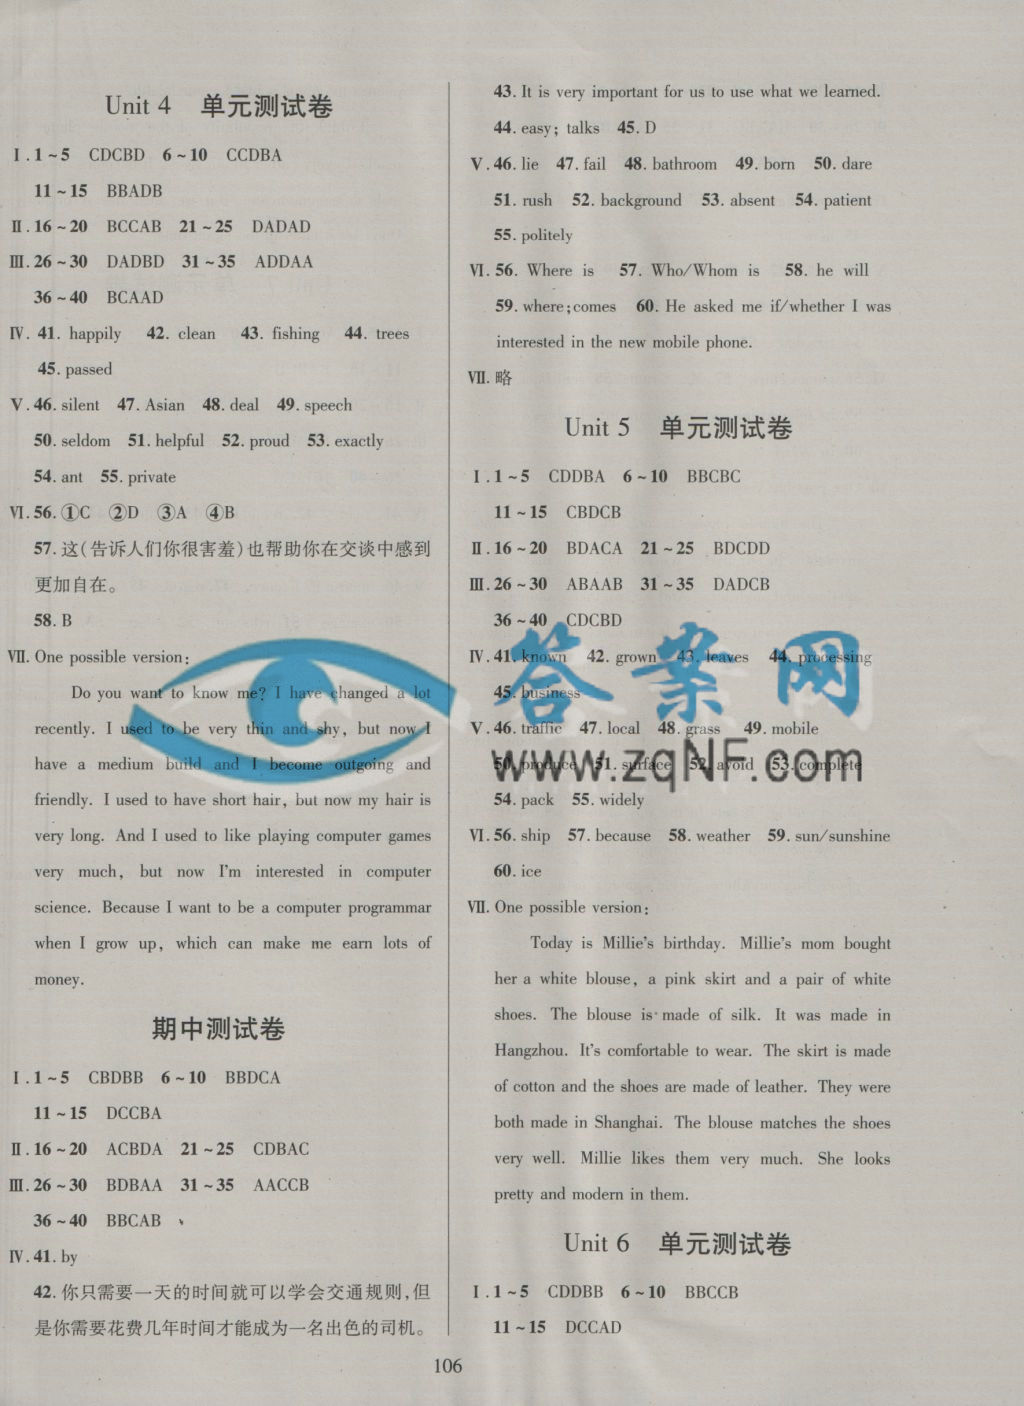 Unit 4 单元测试卷
Ⅰ.1~5 CDCBD 6~10 CCDBA
11~15 BBADB
Ⅱ.16~20 BCCAB 21~25 DADAD
Ⅲ.26~30 DADBD 31~35 ADDAA
36~40 BCAAD
Ⅳ.41. happily 42. clean 43. fishing 44. trees
45. passed
Ⅴ.46. silent 47. Asian 48. deal 49. speech
50. seldom 51. helpful 52. proud 53. exactly
54. ant 55. private
Ⅵ.56. ①C ②D ③A ④B
57. 这(告诉人们你很害羞)也帮助你在交谈中感到
更加自在。
58. B
Ⅶ. One possible version:
Do you want to know me? I have changed a lot
recently. I used to be very thin and shy, but now I
have a medium build and I become outgoing and
friendly. I used to have short hair, but now my hair is
very long. And I used to like playing computer games
very much, but now I'm interested in computer
science. Because I want to be a computer programmar
when I grow up, which can make me earn lots of
money.
期中测试卷
Ⅰ.1~5 CBDBB 6~10 BBDCA
11~15 DCCBA
Ⅱ.16~20 ACBDA 21~25 CDBAC
Ⅲ.26~30 BDBAA 31~35 AACCB
36~40 BBCAB
Ⅳ.41. by
42. 你只需要一天的时间就可以学会交通规则,但
是你需要花费几年时间才能成为一名出色的司机。
43. It is very important for us to use what we learned.
44. easy; talks 45. D
Ⅴ.46. lie 47. fail 48. bathroom 49. born 50. dare
51. rush 52. background 53. absent 54. patient
55. politely
Ⅵ.56. Where is 57. Who/Whom is 58. he will
59. where;comes 60. He asked me if/whether I was
interested in the new mobile phone.
Ⅶ. 略
Unit 5 单元测试卷
Ⅰ.1~5 CDDBA 6~10 BBCBC
11~15 CBDCB
Ⅱ.16~20 BDACA 21~25 BDCDD
Ⅲ.26~30 ABAAB 31~35 DADCB
36~40 CDCBD
Ⅳ.41. known 42. grown 43. leaves 44. processing
45. business
Ⅴ.46. traffic 47. local 48. grass 49. mobile
50. produce 51. surface 52. avoid 53. complete
54. pack 55. widely
Ⅵ.56. ship 57. because 58. weather 59. sun/sunshine
60. ice
Ⅶ. One possible version:
Today is Millie's birthday. Millie's mom bought
her a white blouse, a pink skirt and a pair of white
shoes. The blouse is made of silk. It was made in
Hangzhou. It's comfortable to wear. The skirt is made
of cotton and the shoes are made of leather. They were
both made in Shanghai. The blouse matches the shoes
very well. Millie likes them very much. She looks
pretty and modern in them.
Unit 6 单元测试卷
Ⅰ.1~5 CDDBB 6~10 BBCCB
11~15 DCCAD
106
答案网
www.zqNF.com